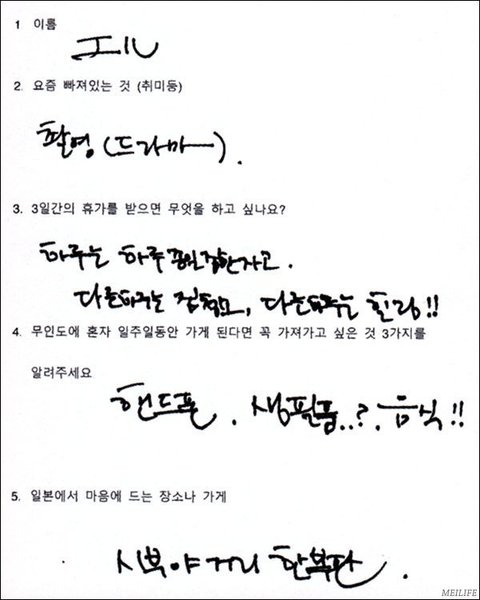 1 이름
2. 요즘 빠져있는 것 (취미등)
촬영 (드라마~).
3. 3일간의 휴가를 받으면 무엇을 하고 싶나요?
하루는 하루 자고.
다른하루는, 다른하루는 힐링!!
4. 무인도에 혼자 일주일동안 가게 된다면 꼭 가져가고 싶은 것 3가지를
알려주세요
핸드폰. 생필품..?. 음식!!
5. 일본에서 마음에 드는 장소나 가게
시부야 거리 한복판.
MEILIFE